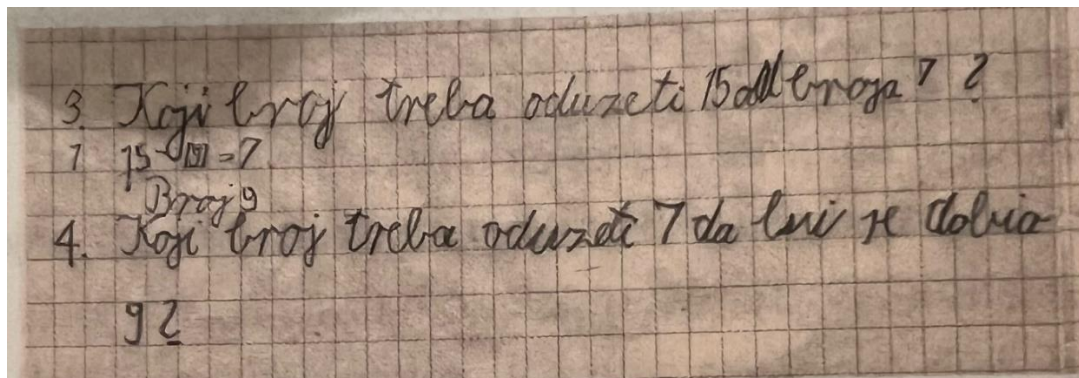 3. Koji broj treba oduzeti 15 od broja 7 ?
1 15-9=7
Broj 9
4. Koji broj treba oduzeti 7 da bui se dobia
9 ?